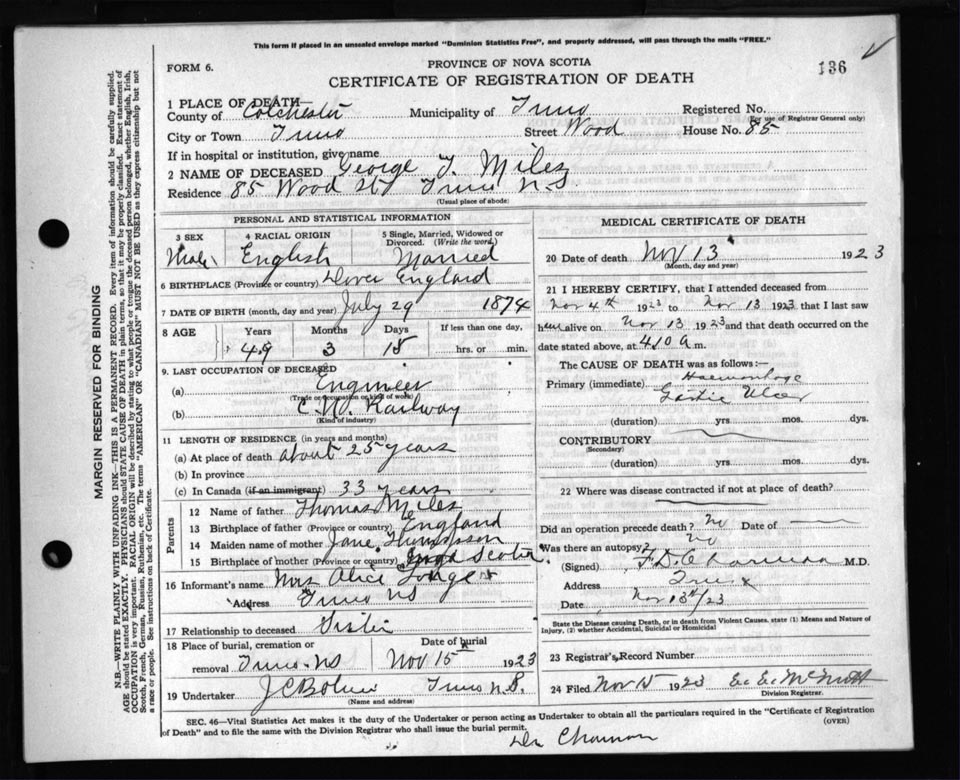 This form if placed in an unsealed envelope marked "Dominion Statistics Free", and properly addressed, will pass through the mails "FREE."
FORM 6.
PROVINCE OF NOVA SCOTIA
136
CERTIFICATE OF REGISTRATION OF DEATH
1 PLACE OF DEATH—
County of Colchester Municipality of Truro Registered No.
(For use of Registrar General only)
City or Town Truro Street Wood House No. 85
If in hospital or institution, give name
2 NAME OF DECEASED George T. Miles
Residence 85 Wood St Truro N.S
(Usual place of abode)
PERSONAL AND STATISTICAL INFORMATION
3 SEX 4 RACIAL ORIGIN 5 Single, Married, Widowed or Divorced. (Write the word.)
Male English Married
6 BIRTHPLACE (Province or country) Dover England
7 DATE OF BIRTH (month, day and year) July 29 1874
8 AGE Years Months Days If less than one day,
49 3 15 hrs. or min.
9. LAST OCCUPATION OF DECEASED
(a) Engineer
(Trade or occupation or kind of work)
(b) C.N. Railway
(Kind of industry)
11 LENGTH OF RESIDENCE (in years and months)
(a) At place of death about 25 years
(b) In province
(c) In Canada (if an immigrant) 33 years
Parents
12 Name of father Thomas Miles
13 Birthplace of father (Province or country) England
14 Maiden name of mother Jane Thompson
15 Birthplace of mother (Province or country) Scotia
16 Informant's name Mrs Alice
Address Truro NS
17 Relationship to deceased Sister
18 Place of burial, cremation or removal Truro NS Date of burial Nov 15 1923
19 Undertaker J C Truro N.S.
(Name and address)
MEDICAL CERTIFICATE OF DEATH
20 Date of death Nov 13 1923
(Month, day and year)
21 I HEREBY CERTIFY, that I attended deceased from
Nov 4th 1923 to Nov 13 1923 that I last saw
him alive on Nov 13 1923 and that death occurred on the
date stated above, at 4 10 a m.
The CAUSE OF DEATH was as follows:-
Primary (immediate) Haemorrhage
Gastric Ulcer
(duration) yrs. mos. dys.
CONTRIBUTORY
(Secondary)
(duration) yrs. mos. dys.
22 Where was disease contracted if not at place of death?
Did an operation precede death? no Date of
Was there an autopsy? no
(Signed) M.D.
Address Truro
Date Nov 13th/23
State the Disease causing Death, or in death from Violent Causes, state (1) Means and Nature of
Injury, (2) whether Accidental, Suicidal or Homicidal
23 Registrar's Record Number
24 Filed Nov 15 1923
Division Registrar.
SEC. 46—Vital Statistics Act makes it the duty of the Undertaker or person acting as Undertaker to obtain all the particulars required in the "Certificate of Registration
of Death" and to file the same with the Division Registrar who shall issue the burial permit.
(OVER)
Dr
MARGIN RESERVED FOR BINDING
N.B.—WRITE PLAINLY WITH UNFADING INK—THIS IS A PERMANENT RECORD. Every item of information should be carefully supplied.
AGE should be stated EXACTLY. PHYSICIANS should STATE CAUSE OF DEATH in plain terms, so that it may be properly classified. Exact statement of
OCCUPATION is very important. RACIAL ORIGIN will be described by stating to what people or tongue the deceased person belonged, whether English, Irish,
Scotch, French, German, Russian, Ruthenian, etc. The terms "AMERICAN" or "CANADIAN" MUST NOT BE USED as they express citizenship but not
a race or people. See instructions on back of Certificate.